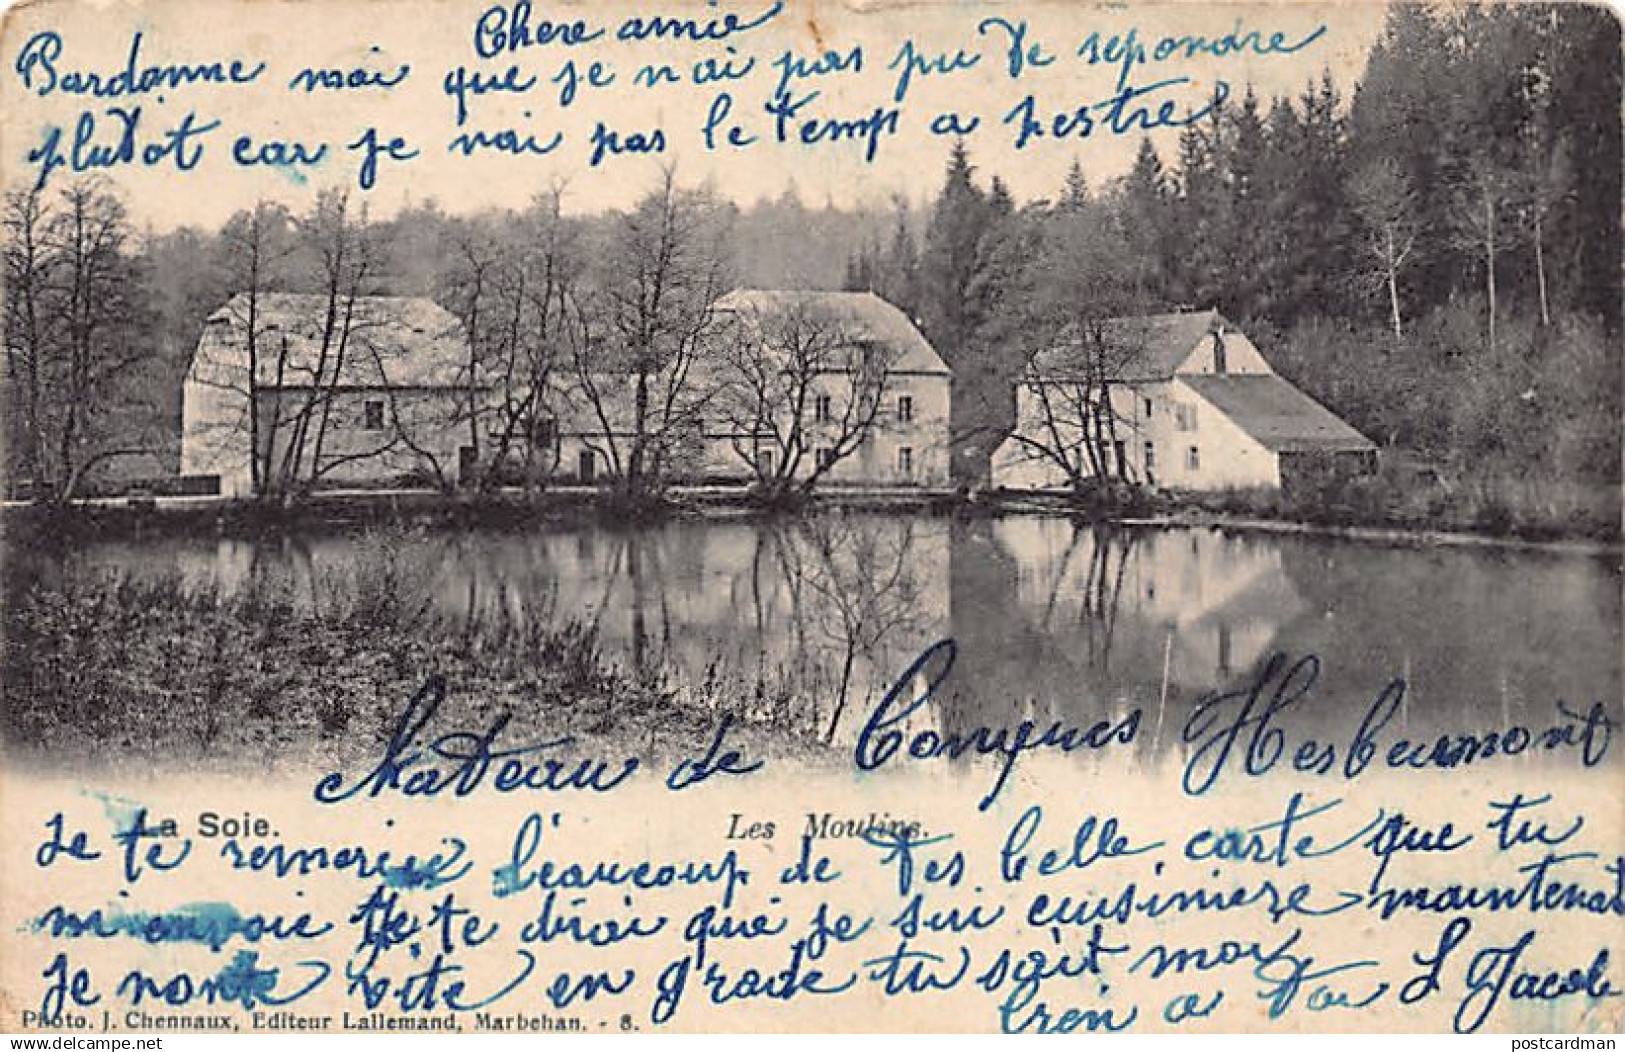 Chere amie
Pardonne moi que je n'ai pas pu te repondre
plutot car je n'ai pas le temp a pestre
chateau de Conques Herbeumont
La Soie. Les Moulins.
Je te remercie beaucoup de tes belle carte que tu
m'envoie Je te dirai que je sui cuisiniere maintenat
Je monte vite en grade tu sait moi
bien a toi L Jacob
Photo. J. Chennaux, Editeur Lallemand, Marbehan. - 8.
delcampe.net
postcardman